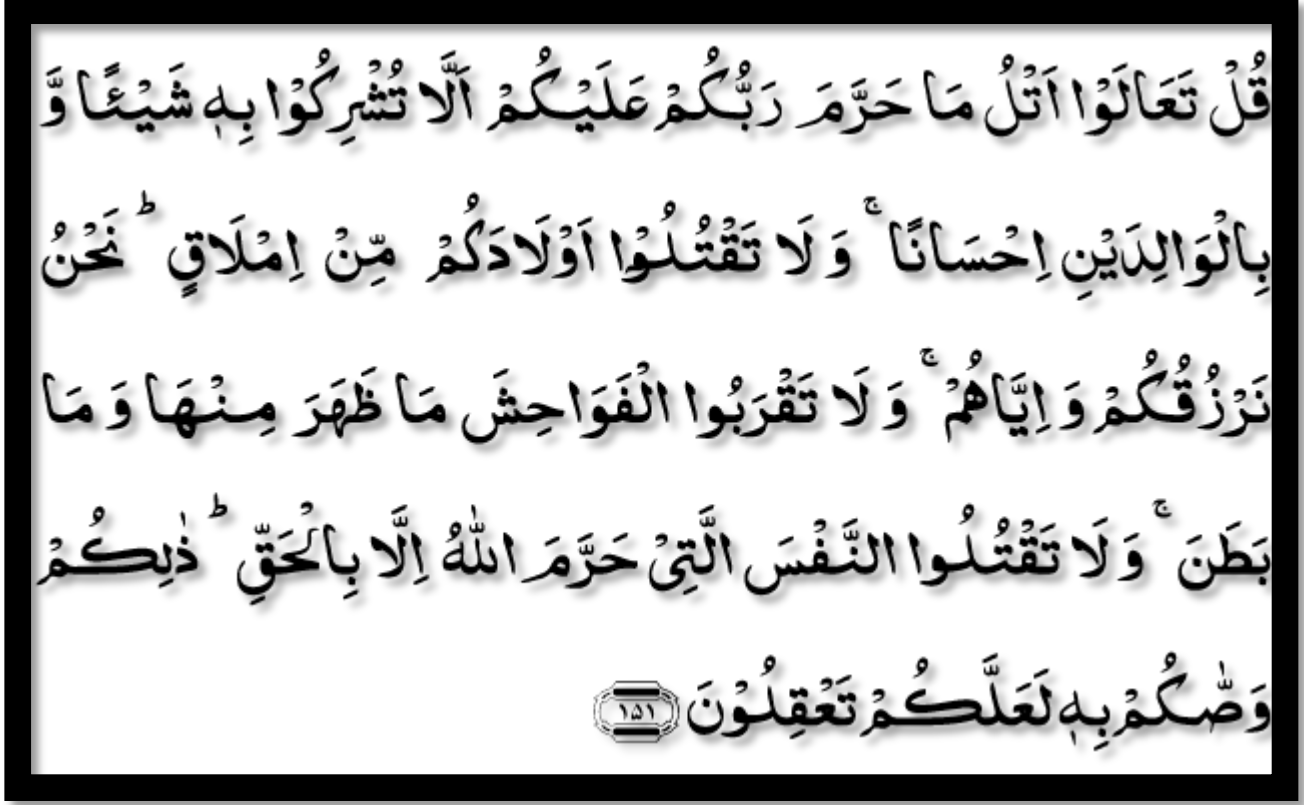 قُلۡ تَعَالَوۡا اَتۡلُ مَا حَرَّمَ رَبُّكُمۡ عَلَيۡكُمۡ اَلَّا تُشۡرِكُوۡا بِهٖ شَيۡـًٔـا وَّ
بِالۡوَالِدَيۡنِ اِحۡسَانًا‌ ۚ وَ لَا تَقۡتُلُوۡۤا اَوۡلَادَكُمۡ مِّنۡ اِمۡلَاقٍ‌ ؕ نَحۡنُ
نَرۡزُقُكُمۡ وَ اِيَّاهُمۡ‌ ۚ وَ لَا تَقۡرَبُوا الۡفَوَاحِشَ مَا ظَهَرَ مِنۡهَا وَ مَا
بَطَنَ‌ ۚ وَ لَا تَقۡتُلُوا النَّفۡسَ الَّتِىۡ حَرَّمَ اللّٰهُ اِلَّا بِالۡحَـقِّ‌ ؕ ذٰ لِكُمۡ
وَصّٰٮكُمۡ بِهٖ لَعَلَّكُمۡ تَعۡقِلُوۡنَ ۱۵۱